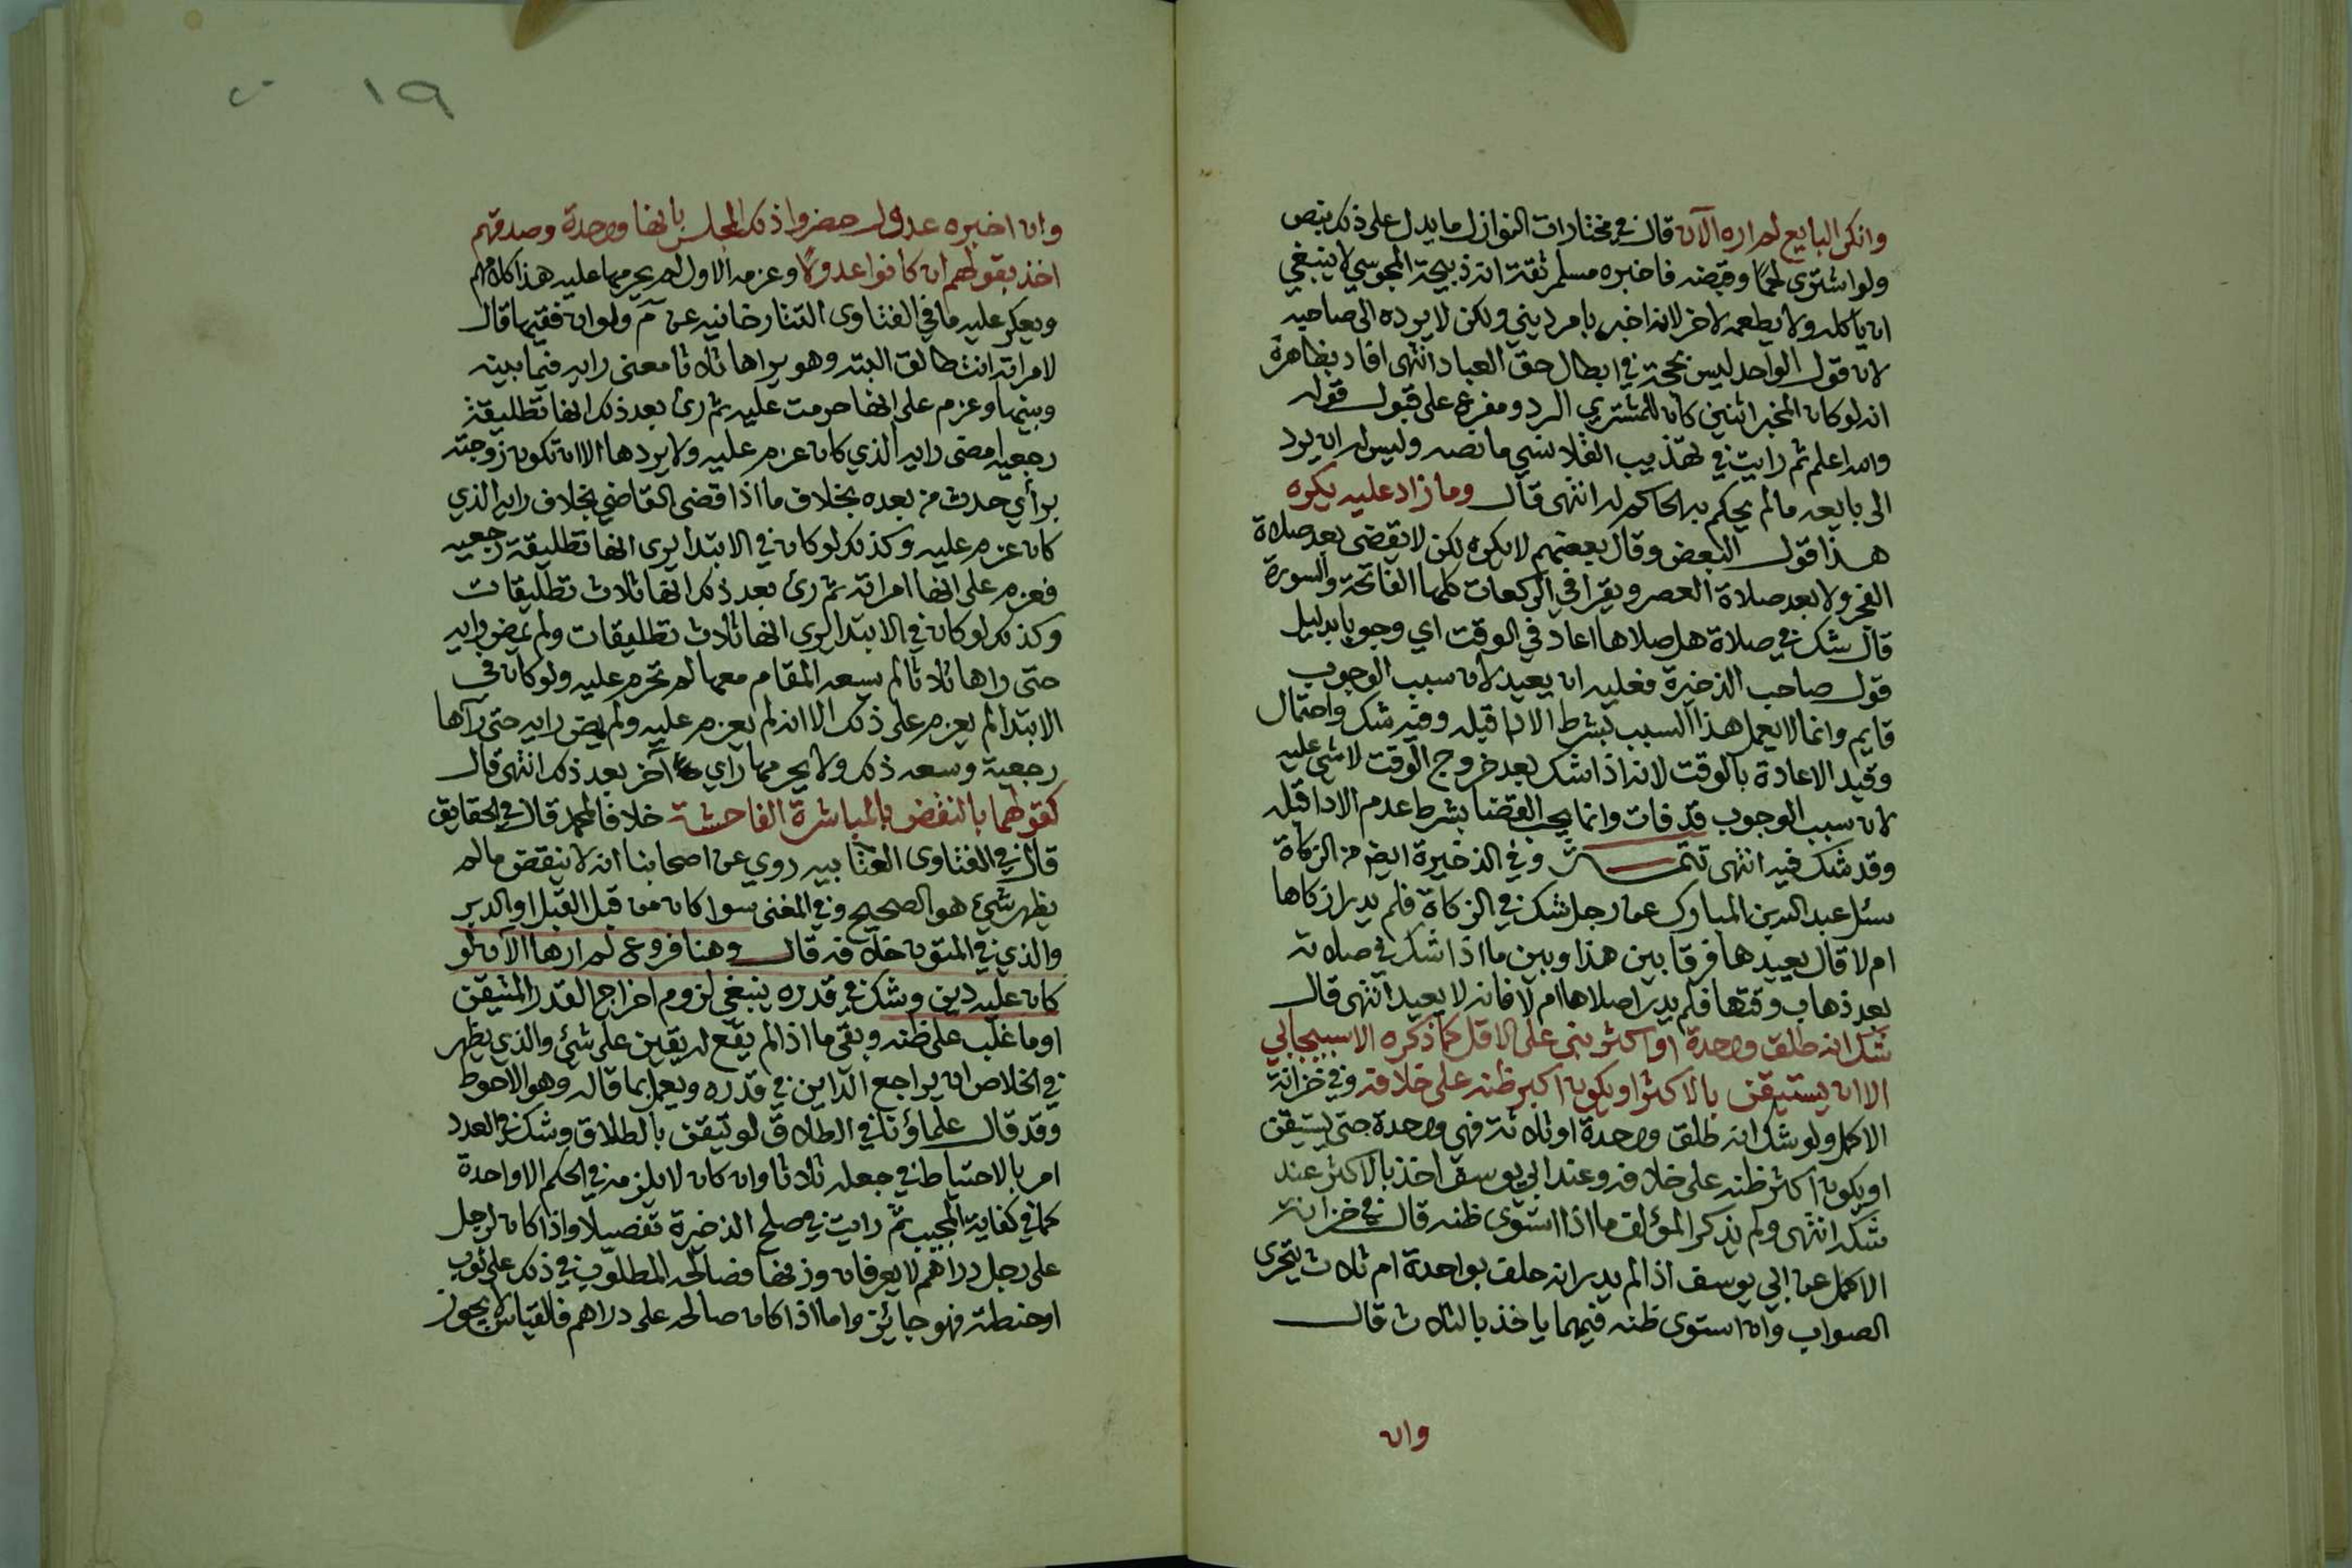 وانكر البايع لم اره الآن قال في مختارات النوازل ما يدل على ذلك بنص
ولو اشترى لحمًا وقبضه فاخبره مسلم ثقة انه ذبيحة المجوسي لا ينبغي
ان ياكله ولا يطعمه لاخر لانه اخبر بامر ديني ولكن لا يرده الى صاحبه
لان قول الواحد ليس بحجة في ابطال حق العباد انتهى افاد بظاهره
انه لو كان المخبر اثنين كان للمشتري الرد ومفرع على قبول قوله
والله اعلم ثم رايت في تهذيب القلانسي ما نصه وليس له ان يرد
الى بايعه مالم يحكم به الحاكم له انتهى قال وما زاد عليه يكره
هذا قول البعض وقال بعضهم لا يكره لكن لا يقضى بعد صلاة
الفجر ولا بعد صلاة العصر ويقرا في الركعات كلها الفاتحة والسورة
قال شك في صلاة هل صلاها اعاد في الوقت اي وجوبا بدليل
قول صاحب الذخيرة فعليه ان يعيد لان سبب الوجوب
قايم وانما لا يعمل هذا السبب بشرط الادا قبله وفيه شك واحتمال
وقيد الاعادة بالوقت لانه اذا شك بعد خروج الوقت لا شي عليه
لان سبب الوجوب قد فات وانما يجب القضا بشرط عدم الادا قبله
وقد شك فيه انتهى تتمة وفي الذخيرة ايض من الزكاة
سئل عبد الله بن المبارك عن رجل شك في الزكاة فلم يدر ازكاها
ام لا قال يعيدها فرقا بين هذا وبين ما اذا شك في صلاته
بعد ذهاب وقتها فلم يدر اصلاها ام لا فانه لا يعيد انتهى قال
شك انه طلق واحدة او اكثر بنى على الاقل كما ذكره الاسبيجابي
الا ان يستيقن بالاكثر او يكون اكبر ظنه على خلافه وفي خزانة
الاكمل ولو شك انه طلق واحدة او ثلاثة فهي واحدة حتى يستيقن
او يكون اكثر ظنه على خلافه وعند ابي يوسف اخذ بالاكثر عند
شكه انتهى ولم يذكر المؤلف ما اذا استوى ظنه قال في خزانة
الاكمل عن ابي يوسف اذا لم يدر انه حلف بواحدة ام ثلاث يتحرى
الصواب وان استوى ظنه فيهما ياخذ بالثلاث قال
وان
١٩
وان اخبره عدول حضروا ذلك المجلس بانها واحدة وصدقهم
اخذ بقولهم ان كانوا عدولًا وعزمه الاول لم يحرمها عليه هذا كلامهم
ويعكر عليه ما في الفتاوى التتارخانيه عن م ولو ان فقيها قال
لامراته انت طالق البته وهو يراها ثلاثا فمضى رايه فيما بينه
وبينها وعزم على انها حرمت عليه ثم رئ بعد ذلك انها تطليقة
رجعيه امضى رايه الذي كان عزم عليه ولا يردها الا ان تكون زوجته
برأي حدث من بعده بخلاف ما اذا قضى القاضي بخلاف رايه الذي
كان عزم عليه وكذلك لو كان في الابتدا يرى انها تطليقة رجعيه
فعزم على انها امراته ثم رئ بعد ذلك انها ثلاث تطليقات
وكذلك لو كان في الابتدا يرى انها ثلاث تطليقات ولم يمض رايه
حتى راها ثلاثا لم يسعه المقام معها لم تحرم عليه ولو كان في
الابتدا لم يعزم على ذلك الا انه لم يعزم عليه ولم يمض رايه حتى رآها
رجعية وسعه ذلك ولا يحرمها راي آخر بعد ذلك انتهى قال
كقولهما بالنقض بالمباشرة الفاحشة خلافا لمحمد قال في الحقايق
قال في الفتاوى العتابيه روي عن اصحابنا انه لا ينقض مالم
يظهر شيء هو الصحيح وفي المغنى سوا كان من قبل القبل او الدبر
والذي في المتون خلافه قال وهنا فروع لم ارها الآن لو
كان عليه دين وشك في قدره ينبغي لزوم اخراج القدر المتيقن
او ما غلب على ظنه وبقى ما اذا لم يقع له يقين على شئ والذي يظهر
في الخلاص ان يراجع الداين في قدره ويعمل بما قاله وهو الاحوط
وقد قال علماؤنا في الطلاق لو تيقن بالطلاق وشك في العدد
امر بالاحتياط في جعله ثلاثا وان كان لا يلزمه في الحكم الا واحدة
كما في كفاية المجيب ثم رايت في صلح الذخيرة تفصيلا واذا كان لرجل
على رجل دراهم لا يعرفان وزنها فصالحه المطلوب في ذلك على ثوب
او حنطة فهو جائز واما اذا كان صالحه على دراهم فالقياس لا يجوز